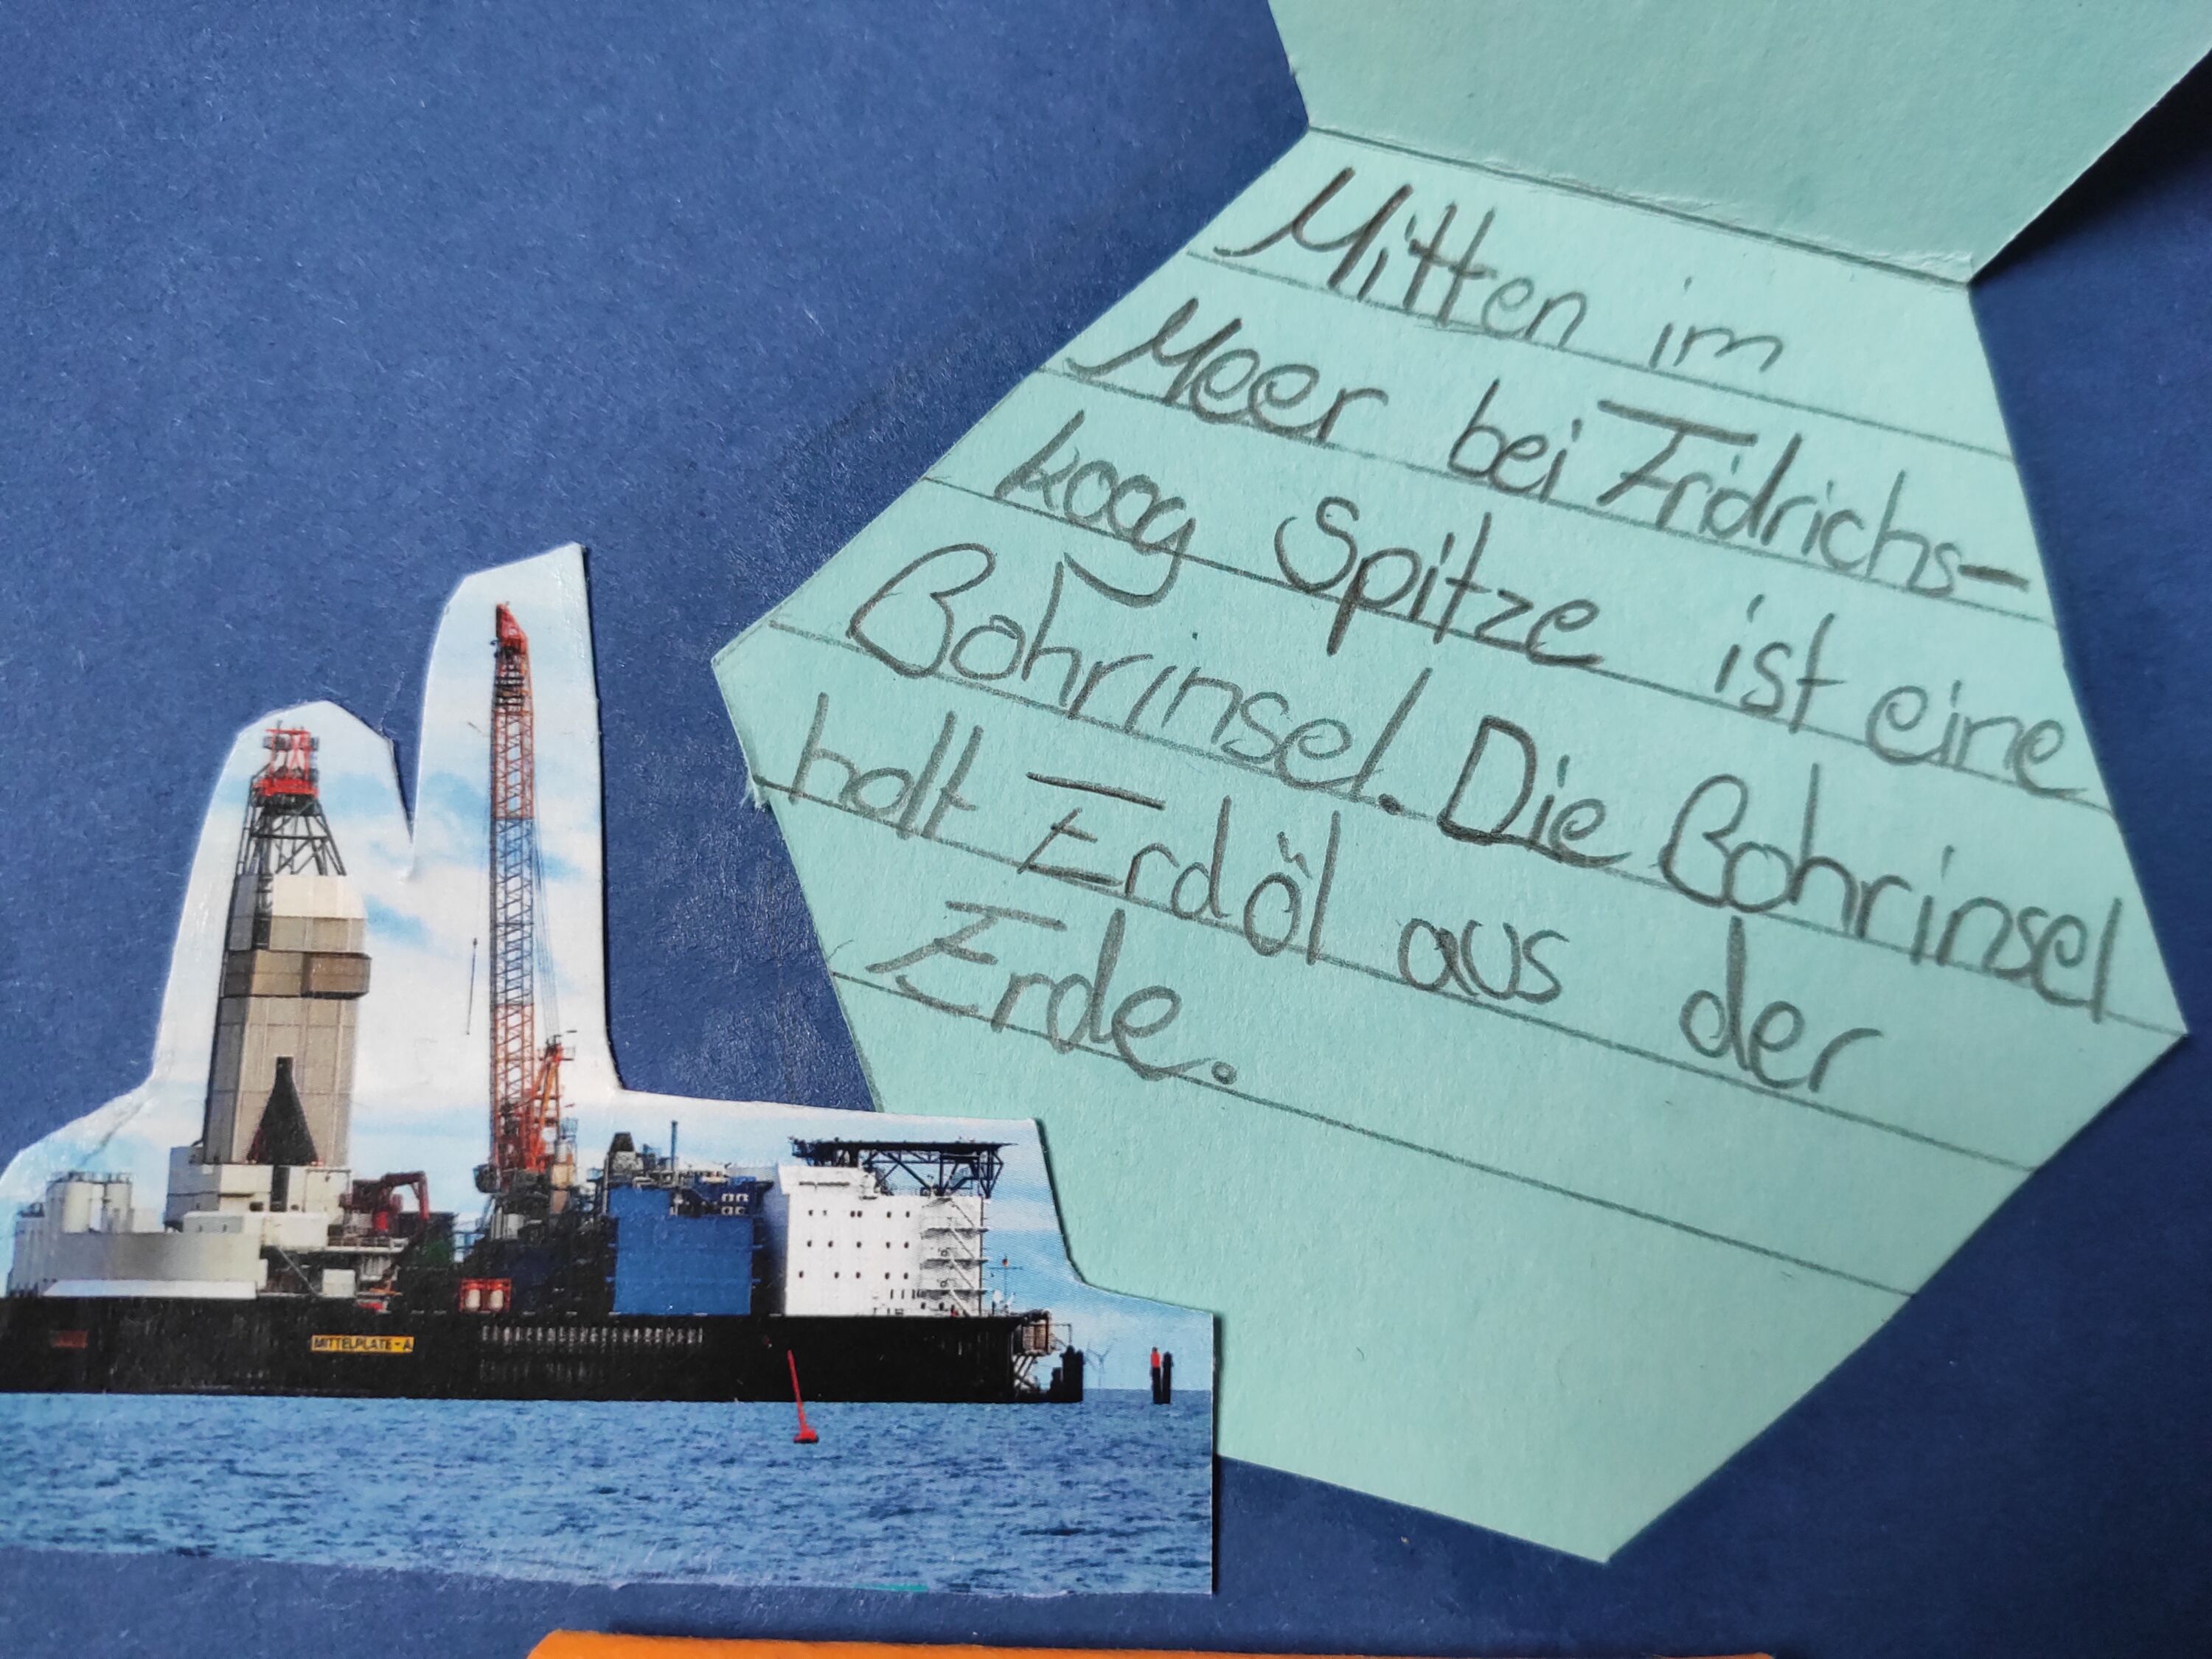 Mitten im
Meer bei Fridrichs-
koog Spitze ist eine
Bohrinsel. Die Bohrinsel
holt Erdöl aus der
Erde.
MITTELPLATE-A